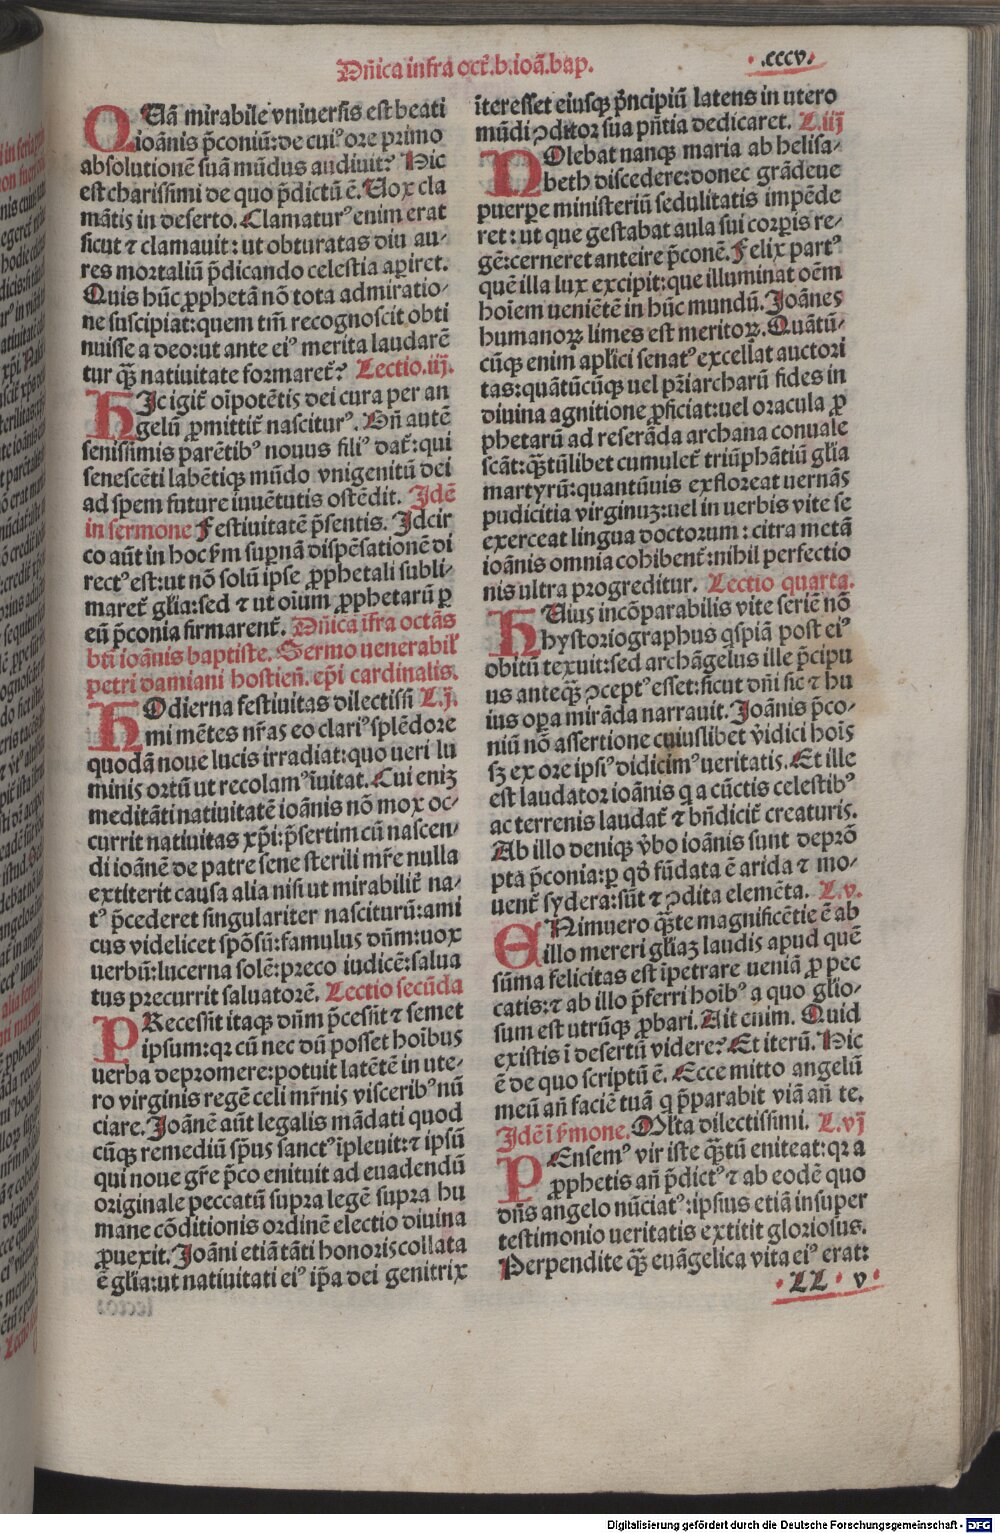 Dñica infra oct̄.b.ioã.bap.
.cccv.
QUã mirabile vniuersis est beati
ioãnis p̄coniũ:de cuiꝰ ore primo
absolutionẽ suã mũdus audiuit? Hic
est charissimi de quo p̄dictũ ẽ. Uox cla
mãtis in deserto. Clamaturꝰ enim erat
sicut ⁊ clamauit: ut obturatas diu au-
res mortaliũ p̄dicando celestia aperiret.
Quis hũc ꝓphetã nõ tota admiratio-
ne suscipiat:quem tm̄ recognoscit obti
nuisse a deo:ut ante eiꝰ merita laudarẽ
tur qꝫ̃ natiuitate formaret̄? Lectio.iij.
HIc igit̄ oĩpotẽtis dei cura per an
gelũ ꝓmittit̄ nasciturꝰ. Hñ autẽ
senissimis parẽtibꝰ nouus filiꝰ dat̄:qui
senescẽti labẽtiqꝫ mũdo vnigenitũ dei
ad spem future iuuẽtutis ostẽdit. Idẽ
in sermone Festiuitatẽ p̄sentis. Idcir
co aũt in hoc ẜm supernã dispẽsationẽ di
rectꝰ est:ut nõ solũ ipse ꝓphetali subli-
maret̄ gl̃ia:sed ⁊ ut oĩum ꝓphetarũ ꝑ
eũ p̄conia firmarent̄. Dñica ĩfra octãs
bt̃i ioãnis baptiste. Sermo venerabil̃
petri damiani hostieñ. ep̃i cardinalis.
HOdierna festiuitas dilectissi L.j.
mi mẽtes nr̃as eo clariꝰ splẽdore
quodã noue lucis irradiat:quo ueri lu
minis ortũ ut recolamꝰ ĩuitat. Cui eniꝫ
meditãti natiuitatẽ ioãnis nõ mox oc-
currit natiuitas xp̃i:p̄sertim cũ nascen-
di ioãnẽ de patre sene sterili mr̃e nulla
extiterit causa alia nisi ut mirabilit̄ na-
tꝰ p̄cederet singulariter nasciturũ:ami
cus videlicet spõsũ:famulus dñm:uox
uerbũ:lucerna solẽ:preco iudicẽ:salua
tus precurrit saluatorẽ. Lectio secũda
PRecess̃it itaqꝫ dñm p̄cess̃it ⁊ semet
ipsum:qꝛ cũ nec dũ posset hoĩbus
uerba depromere:potuit latẽtẽ in ute-
ro virginis regẽ celi mr̃nis visceribꝰ nũ
ciare. Joãnẽ aũt legalis mãdati quod
cũqꝫ remediũ sp̃us sanctꝰ ĩpleuit:⁊ ipsũ
qui noue gr̃e p̄co enituit ad euadendũ
originale peccatũ supra legẽ supra hu
mane cõditionis ordinẽ electio diuina
ꝓuexit. Joãni etiã tãti honoris collata
ẽ gl̃ia:ut natiuitati eiꝰ ip̃a dei genitrix
ĩteresset eiusqꝫ p̄ncipiũ latens in utero
mũdi ꝯditor sua pñtia dedicaret. L.iij
NOlebat nanqꝫ maria ab helisa-
beth discedere:donec grãdeue
puerpe ministeriũ sedulitatis impẽde
ret: ut que gestabat aula sui corꝑis re-
gẽ:cerneret anteire p̄conẽ. Felix partꝰ
quẽ illa lux excipit:que illuminat oẽm
hoĩem ueniẽtẽ in hũc mundũ. Joãnes
humanoꝝ limes est meritoꝝ. Quãtũ-
cũqꝫ enim apl̃ici senatꝰ excellat auctori
tas:quãtũcũqꝫ uel pr̃iarcharũ fides in
diuina agnitione ꝓficiat:uel oracula ꝓ
phetarũ ad reserãda archana conuale
scãt:qꝫ̃tũlibet cumulet̄ triũphãtiũ gl̃ia
martyrũ:quantũuis exfloreat uernãs
pudicitia virginuꝫ:uel in uerbis vite se
exerceat lingua doctorum: citra metã
ioãnis omnia cohibent̄:nihil perfectio
nis ultra progreditur. Lectio quarta.
HUius incõparabilis vite seriẽ nõ
hystoriographus qͥspiã post eiꝰ
obitũ texuit:sed archãgelus ille p̄cipu
us anteqꝫ̃ ꝯceptꝰ esset:sicut dñi sic ⁊ hu
ius opera mirãda narrauit. Joãnis p̄co-
niũ nõ assertione cuiuslibet v̄idici hoĩs
sꝫ ex ore ipsiꝰ didicimꝰ ueritatis. Et ille
est laudator ioãnis q a cũctis celestibꝰ
ac terrenis laudat̄ ⁊ bñdicit̄ creaturis.
Ab illo denique v̄bo ioãnis sunt deprõ
pta p̄conia:ꝑ qḋ fũdata ẽ arida ⁊ mo-
uent̄ sydera:sũt ⁊ ꝯdita elemẽta. L.v.
ENimuero qꝫ̃te magnificẽtie ẽ ab
illo mereri gl̃iaꝫ laudis apud quẽ
sũma felicitas est ĩpetrare ueniã ꝓ pec
catis:⁊ ab illo p̄ferri hoĩbꝰ a quo gl̃io-
sum est utrũqꝫ ꝓbari. Ait enim. Quid
existis ĩ desertũ videre? Et iterũ. Hic
ẽ de quo scriptũ ẽ. Ecce mitto angelũ
meũ añ faciẽ tuã q p̄parabit viã añ te.
Idẽ ĩ ẜmone. Mlta dilectissimi. L.vj
PEnsemꝰ vir iste qꝫ̃tũ eniteat:qꝛ a
ꝓphetis añ p̄dictꝰ ⁊ ab eodẽ quo
dñs angelo nũciatꝰ:ipsius etiã insuper
testimonio ueritatis extitit gloriosus.
Perpendite qꝫ̃ euãgelica vita eiꝰ erat:
LL v
Digitalisierung gefördert durch die Deutsche Forschungsgemeinschaft - DFG